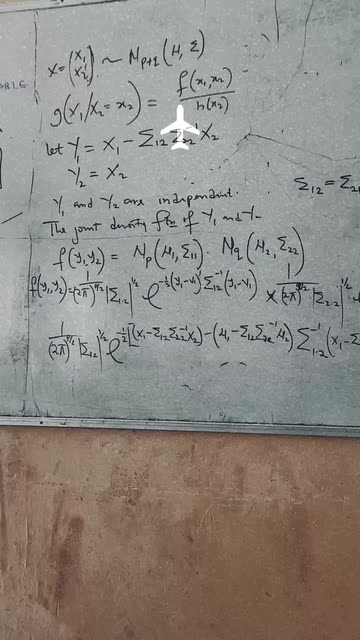 ABLE
X = (X₁ X₂) ~ N_{p+q}(μ, Σ)
g(X₁/X₂ = x₂) = f(x₁, x₂) / h(x₂)
let Y₁ = X₁ - Σ₁₂ Σ₂₂⁻¹ X₂
Y₂ = X₂
Σ₁₂ = Σ₂₁
Y₁ and Y₂ are independent.
The joint density fn of Y₁ and Y₂
f(y₁, y₂) = N_p(μ₁, Σ₁₁) . N_q(μ₂, Σ₂₂)
f(y₁, y₂) = 1/((2π)^{p/2} |Σ₁.₂|^{1/2}) e^{-½(y₁-ν₁)' Σ₁.₂⁻¹ (y₁-ν₁)} × 1/((2π)^{q/2} |Σ₂₂|^{1/2}
1/((2π)^{p/2} |Σ₁.₂|^{1/2}) e^{-½[(x₁-Σ₁₂Σ₂₂⁻¹x₂) - (μ₁-Σ₁₂Σ₂₂⁻¹μ₂) Σ₁.₂⁻¹ (x₁-Σ